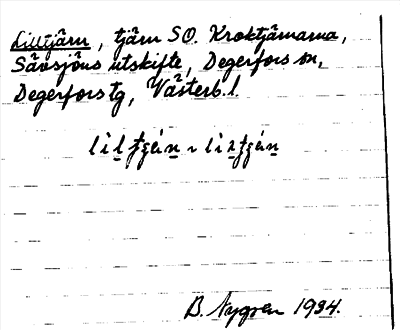 Lilltjärn, tjärn SO. Kroktjärnarna,
Sävsjöns utskifte, Degerfors sn,
Degerfors tg, Västerb. l.
B. Nygren 1934.